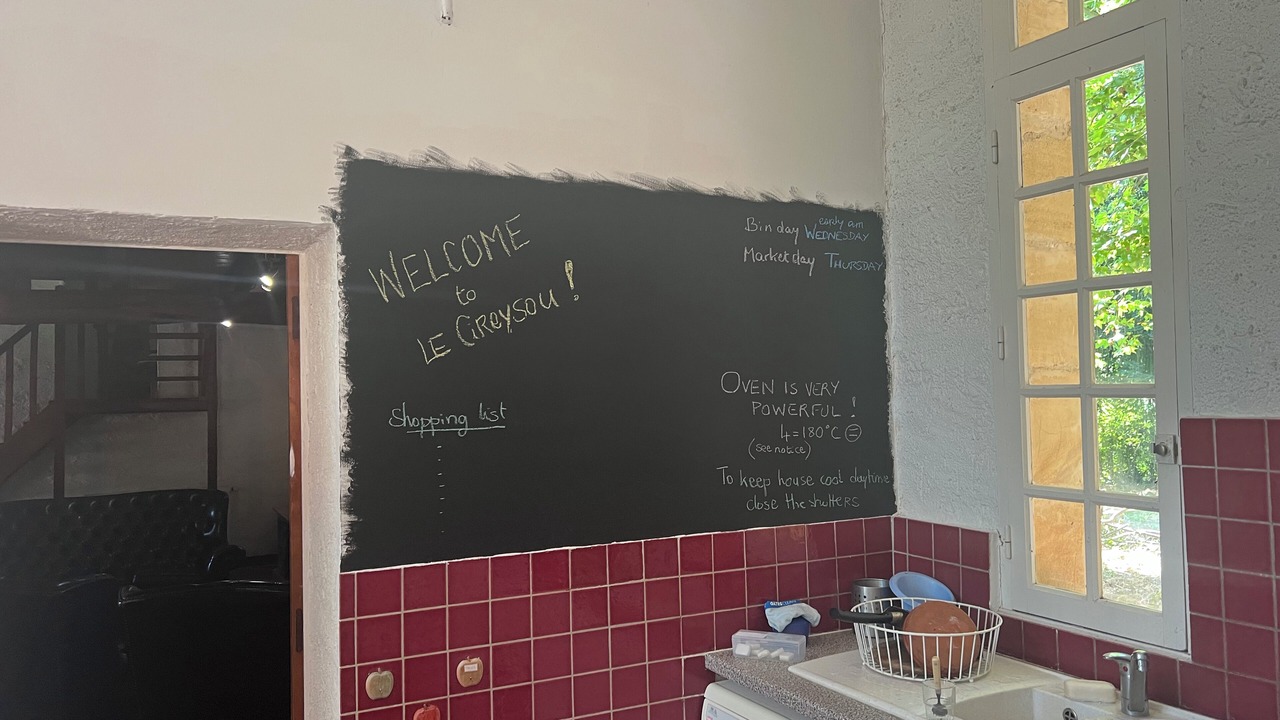 WELCOME
to
LE GREYSOU !
Bin day early am WEDNESDAY
Market day THURSDAY
Shopping list
OVEN IS VERY
POWERFUL !
4=180°C
(see notice)
To keep house cool daytime
close the shutters